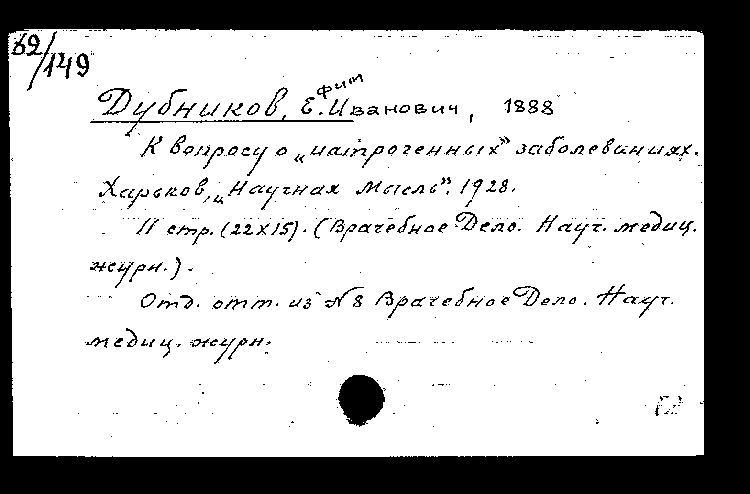 62/149
Дубников, Е.фим Иванович, 1888
К вопросу о „иатрогенных” заболеваниях.
Харьков, „Научная мысль”, 1928.
11 стр. (22x15). (Врачебное Дело. Науч. медиц.
журн.).
Отд. отт. из № 8 Врачебное Дело. Науч.
медиц. журн.